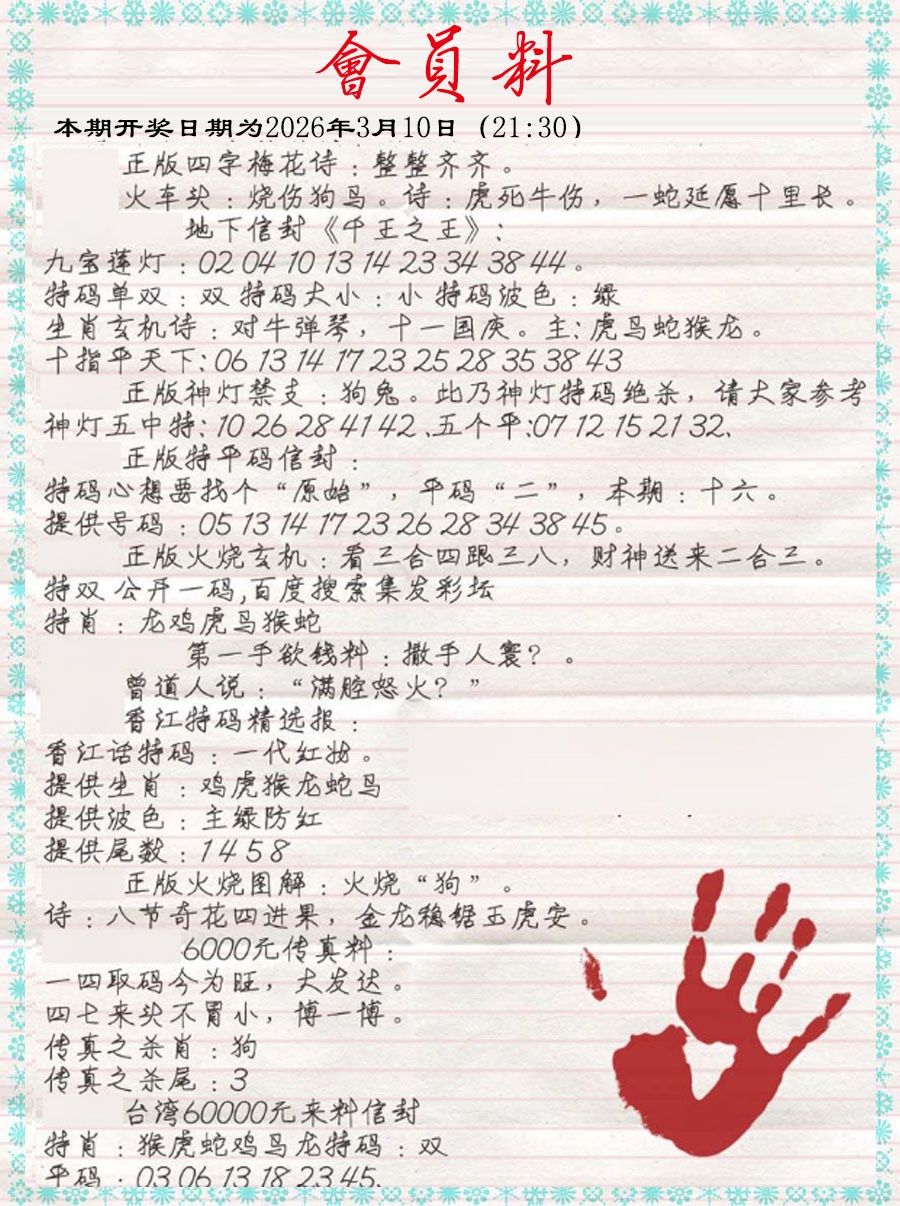 會員料
本期开奖日期为2026年3月10日（21:30）
正版四字梅花诗：整整齐齐。
火车头：烧伤狗马。诗：虎死牛伤，一蛇延愿十里长。
地下信封《千王之王》：
九宝莲灯：02 04 10 13 14 23 34 38 44。
特码单双：双 特码大小：小 特码波色：绿
生肖玄机诗：对牛弹琴，十一国庆。主：虎马蛇猴龙。
十指平天下：06 13 14 17 23 25 28 35 38 43
正版神灯禁支：狗兔。此乃神灯特码绝杀，请大家参考
神灯五中特：10 26 28 41 42 .五个平：07 12 15 21 32.
正版特平码信封：
特码心想要找个“原始”，平码“二”，本期：十六。
提供号码：05 13 14 17 23 26 28 34 38 45。
正版火烧玄机：看三合四跟三八，财神送来二合三。
特双 公开一码,百度搜索集发彩坛
特肖：龙鸡虎马猴蛇
第一手欲钱料：撒手人寰？。
曾道人说：“满腔怒火？”
香江特码精选报：
香江话特码：一代红妆。
提供生肖：鸡虎猴龙蛇马
提供波色：主绿防红
提供尾数：1 4 5 8
正版火烧图解：火烧“狗”。
诗：八节奇花四进果，金龙稳锯玉虎安。
6000元传真料：
一四取码今为旺，大发达。
四七来头不冒小，博一博。
传真之杀肖：狗
传真之杀尾：3
台湾60000元来料信封
特肖：猴虎蛇鸡马龙特码：双
平码：03 06 13 18 23 45.